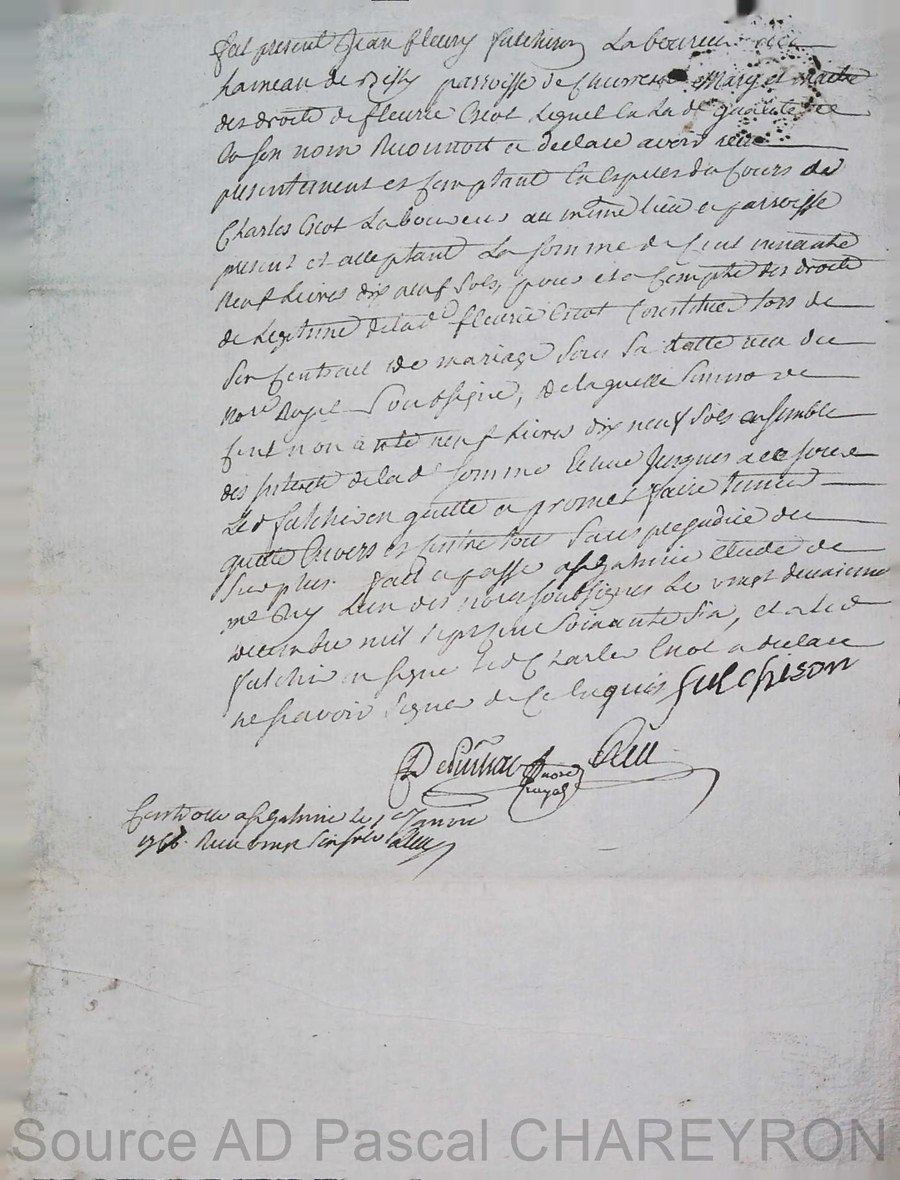 fut present Jean fleury fulchiron Laboureur
hameau de paroisse de Mary et maitre
des droits de fleurie Crot Lequel en La de qualité et
En son nom Reconnoit et declare avoir recu
presentement et comptant En Especes du Cours de
Charles Crot Laboureur au même lieu et parroisse
present et acceptant La somme de Cent nonante
neuf Livres dix neuf sols, pour et a Compte des droits
de Legitime de lad.e fleurie Crot Constitués Lors de
Son Contract de mariage Sous Sa datte recu du
No.re Royal Soussigné, de laquelle Somme de
Cent nonante neuf Livres dix neuf sols ensemble
des Interets de lad.e Somme Echue Jusques a ce jour
Led fulchiron quitte et promet faire tenir
quitte Envers et Contre tous Sans prejudice du
Surplus fait et passé a St Galmier etude de
me L'un des no.res soussignés Le vingt deuxieme
decembre mil sept cent Soixante Six, et a led
fulchiron signé Led Charles Crot a declaré
ne scavoir Signer de Ce Enquis fulchison
no.re
royal
Controllé a St Galmier le Janvier
Recu
Source AD Pascal CHAREYRON